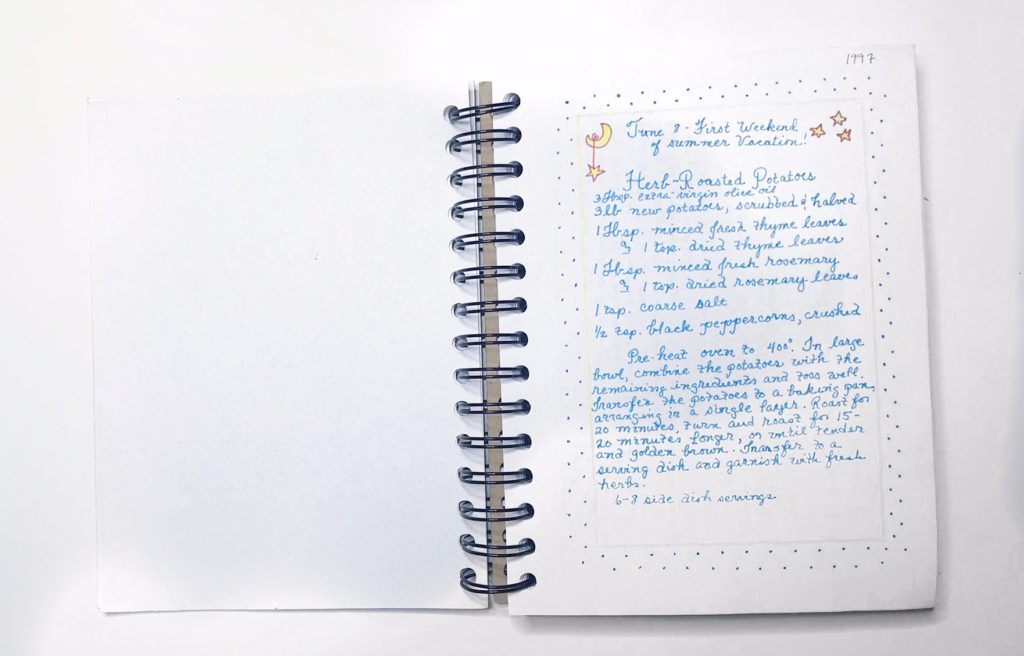 1997
June 8 - First Weekend
of summer Vacation!
Herb-Roasted Potatoes
3 Tbsp. extra-virgin olive oil
3 lb new potatoes, scrubbed & halved
1 Tbsp. minced fresh thyme leaves
or 1 tsp. dried thyme leaves
1 Tbsp. minced fresh rosemary
or 1 tsp. dried rosemary leaves
1 tsp. coarse salt
1/2 tsp. black peppercorns, crushed
Pre-heat oven to 400°. In large
bowl, combine the potatoes with the
remaining ingredients and toss well.
Transfer the potatoes to a baking pan,
arranging in a single layer. Roast for
20 minutes, turn and roast for 15-
20 minutes longer, or until tender
and golden brown. Transfer to a
serving dish and garnish with fresh
herbs.
6-8 side dish servings